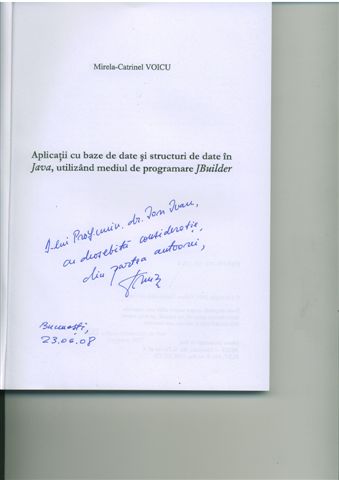 Mirela-Catrinel VOICU
Aplicații cu baze de date și structuri de date în
Java, utilizând mediul de programare JBuilder
D-lui Prof. univ. dr. Ion Ivan,
cu deosebită considerație,
din partea autoarei,
București,
23.04.08